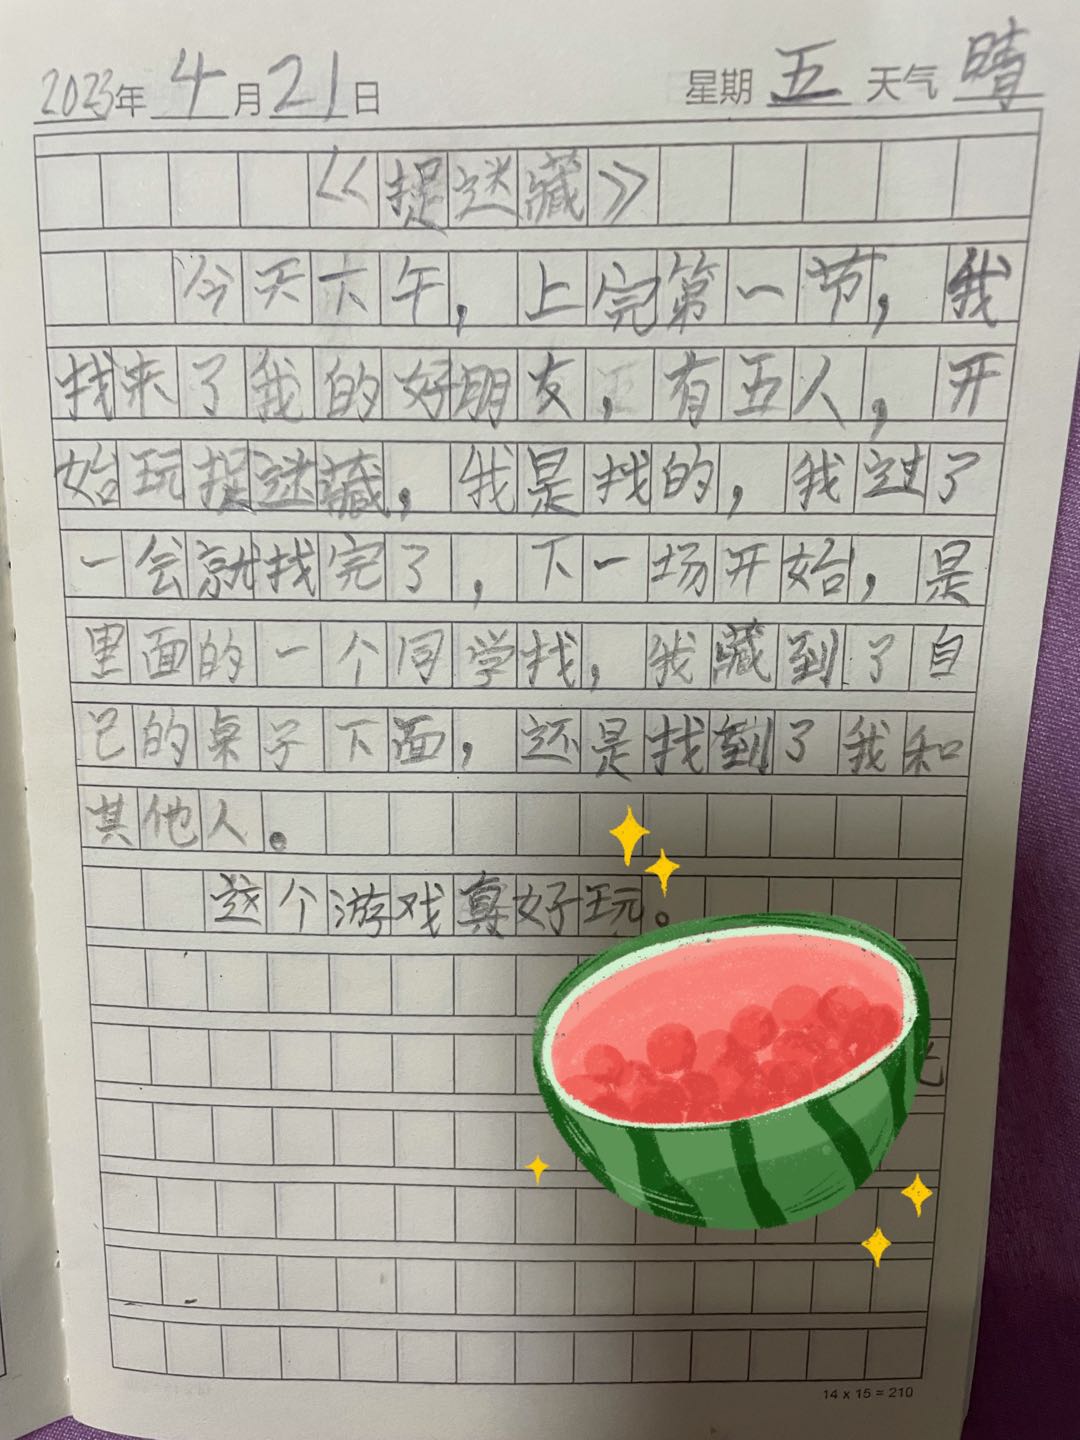 2023年 4月21日 星期五 天气 晴
《捉迷藏》
今天下午，上完第一节，我
找来了我的好朋友，有五人，开
始玩捉迷藏，我是找的，我过了
一会就找完了，下一场开始，是
里面的一个同学找，我藏到了自
己的桌子下面，还是找到了我和
其他人。
这个游戏真好玩。
14 x 15 = 210